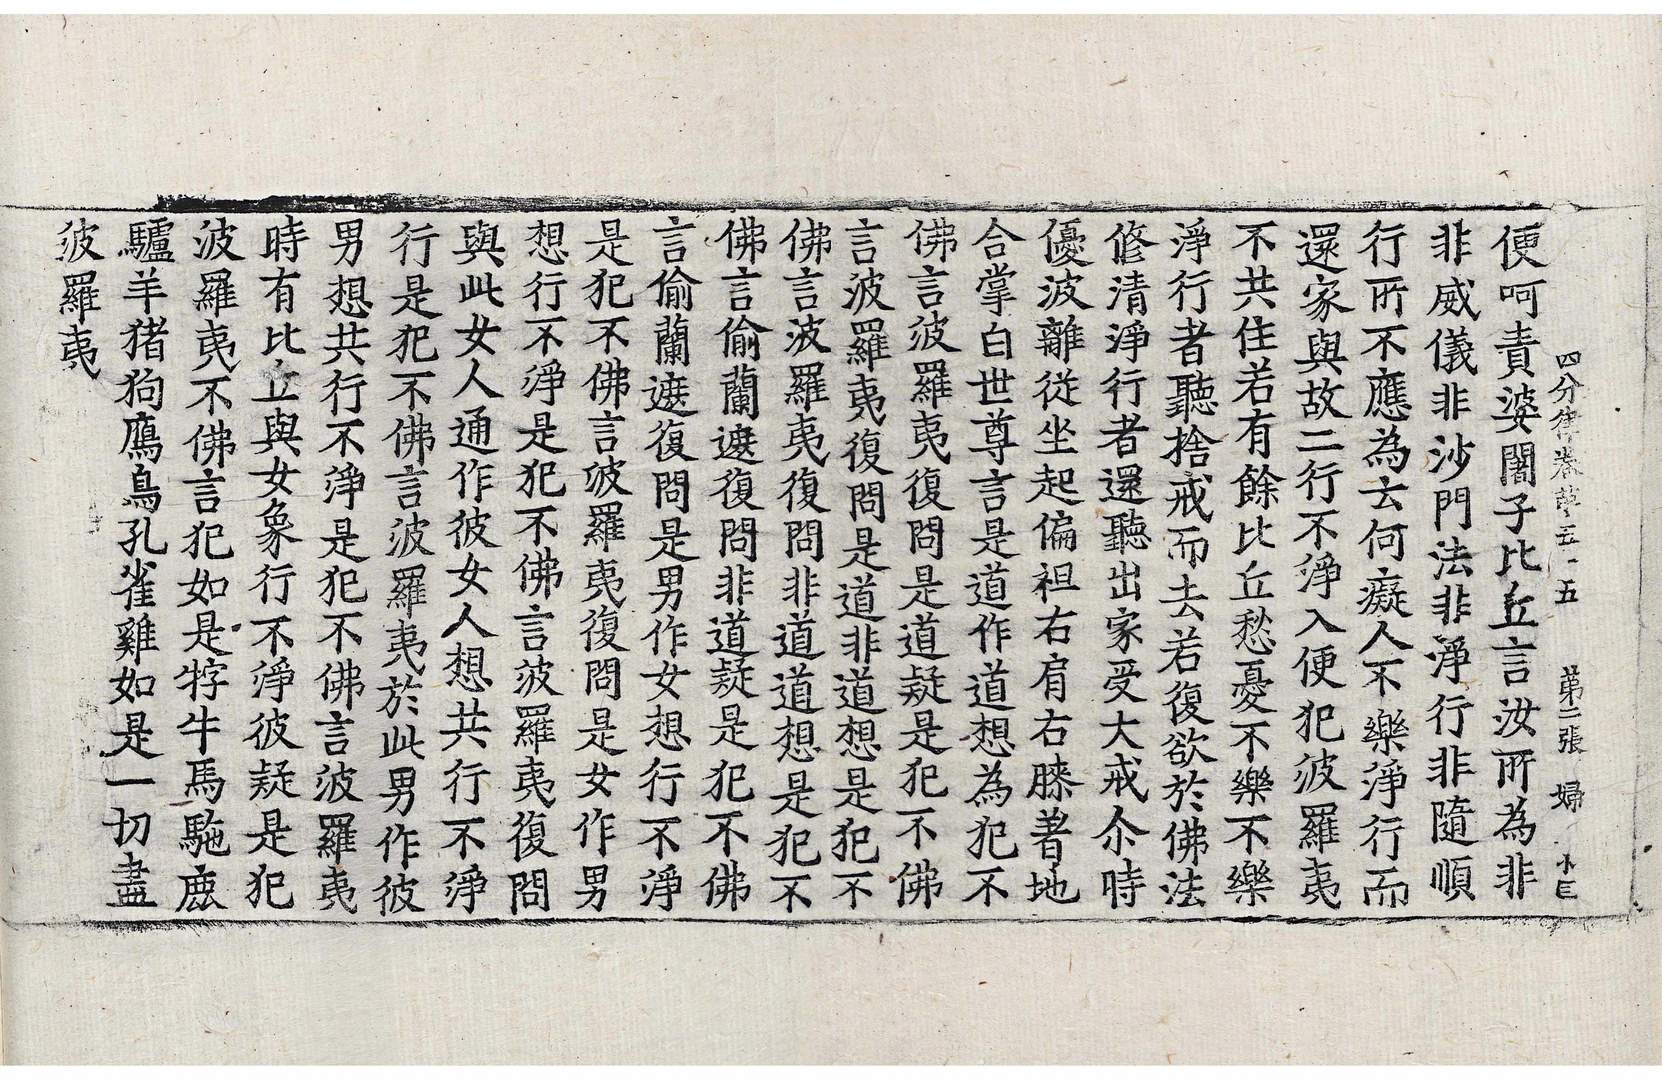 四分律卷第五十五 第二張 婦
便呵責婆闍子比丘言汝所為非
非威儀非沙門法非淨行非隨順
行所不應為云何癡人不樂淨行而
還家與故二行不淨入便犯波羅夷
不共住若有餘比丘愁憂不樂不樂
淨行者聽捨戒而去若復欲於佛法
修清淨行者還聽出家受大戒尒時
優波離從坐起偏袒右肩右膝著地
合掌白世尊言是道作道想為犯不
佛言波羅夷復問是道疑是犯不佛
言波羅夷復問是道非道想是犯不
佛言波羅夷復問非道道想是犯不
佛言偷蘭遮復問非道疑是犯不佛
言偷蘭遮復問是男作女想行不淨
是犯不佛言波羅夷復問是女作男
想行不淨是犯不佛言波羅夷復問
與此女人通作彼女人想共行不淨
行是犯不佛言波羅夷於此男作彼
男想共行不淨是犯不佛言波羅夷
時有比丘與女象行不淨彼疑是犯
波羅夷不佛言犯如是牸牛馬駞鹿
驢羊猪狗鴈鳥孔雀雞如是一切盡
波羅夷